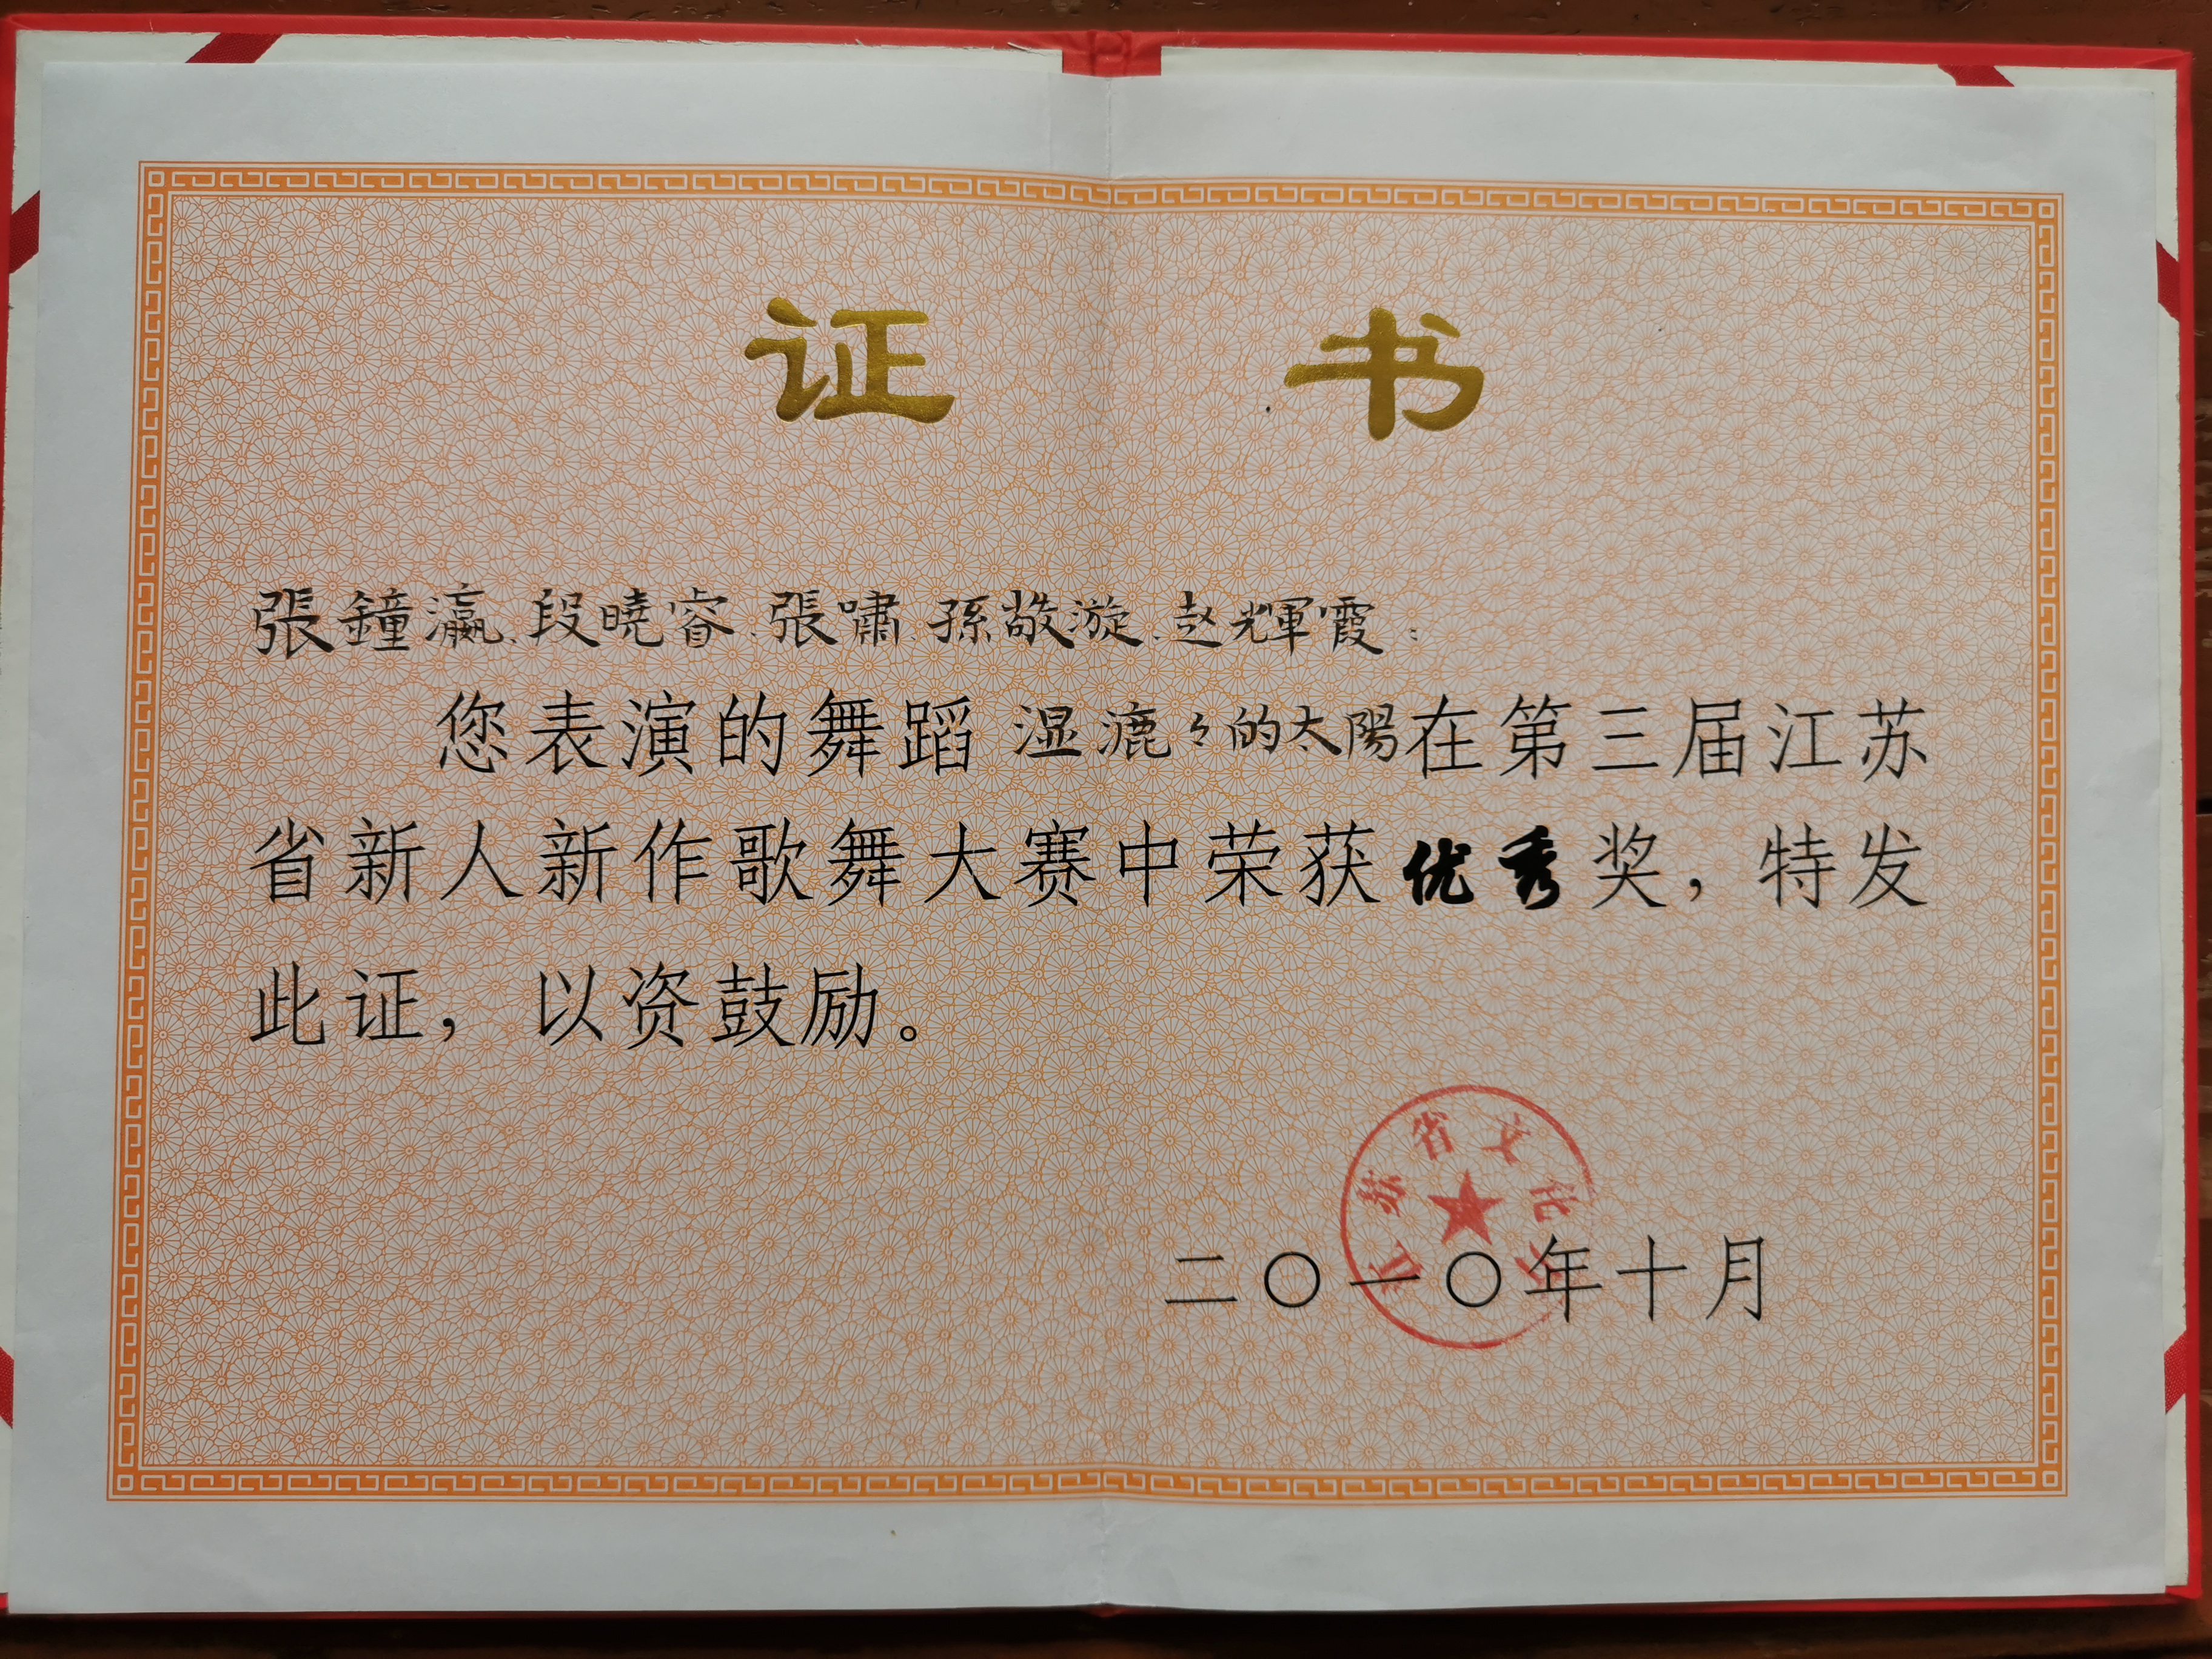 证书
張鐘瀛、段曉睿、張嘯、孫敬漩、赵輝霞：
您表演的舞蹈 湿漉々的太陽在第三届江苏
省新人新作歌舞大赛中荣获优秀奖，特发
此证，以资鼓励。
江苏省文化厅
二〇一〇年十月